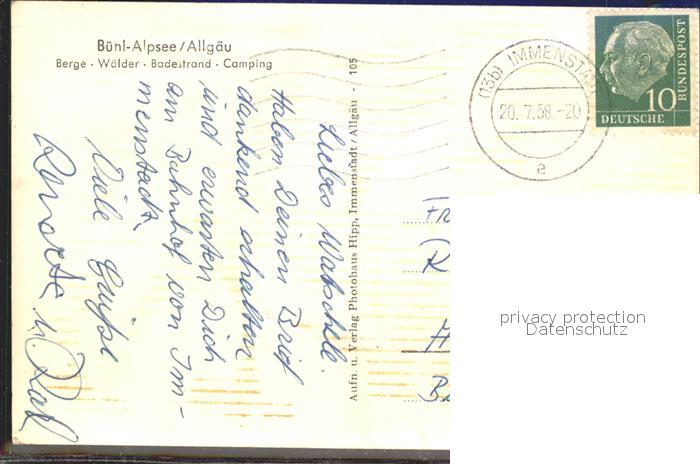 Bühl-Alpsee/Allgäu
Berge · Wälder · Badestrand · Camping
Liebes Watschle.
Haben Deinen Brief
dankend erhalten
und erwarten Dich
am Bahnhof von Im-
menstadt.
Viele Grüße
Renate u.
Aufn. u. Verlag Photohaus Hipp, Immenstadt/Allgäu · 105
(13b) IMMENSTA
20.7.58.-20
e
10
DEUTSCHE
BUNDESPOST
FR
R
H
B
privacy protection
Datenschutz